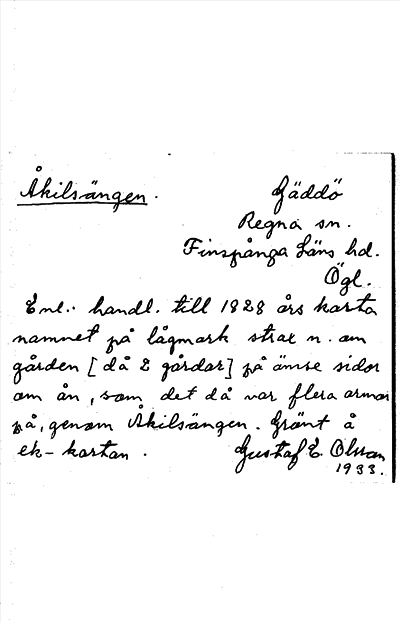 Åkilsängen.
Gäddö
Regna sn.
Finspånga Läns hd.
Ögl.
Enl. handl. till 1828 års karta
namnet på lågmark strax n. om
gården [då 2 gårdar] på ömse sidor
om ån, som det då var flera armar
på, genom Åkilsängen. Grönt å
ek-kartan.
Gustaf E. Olsson
1933.